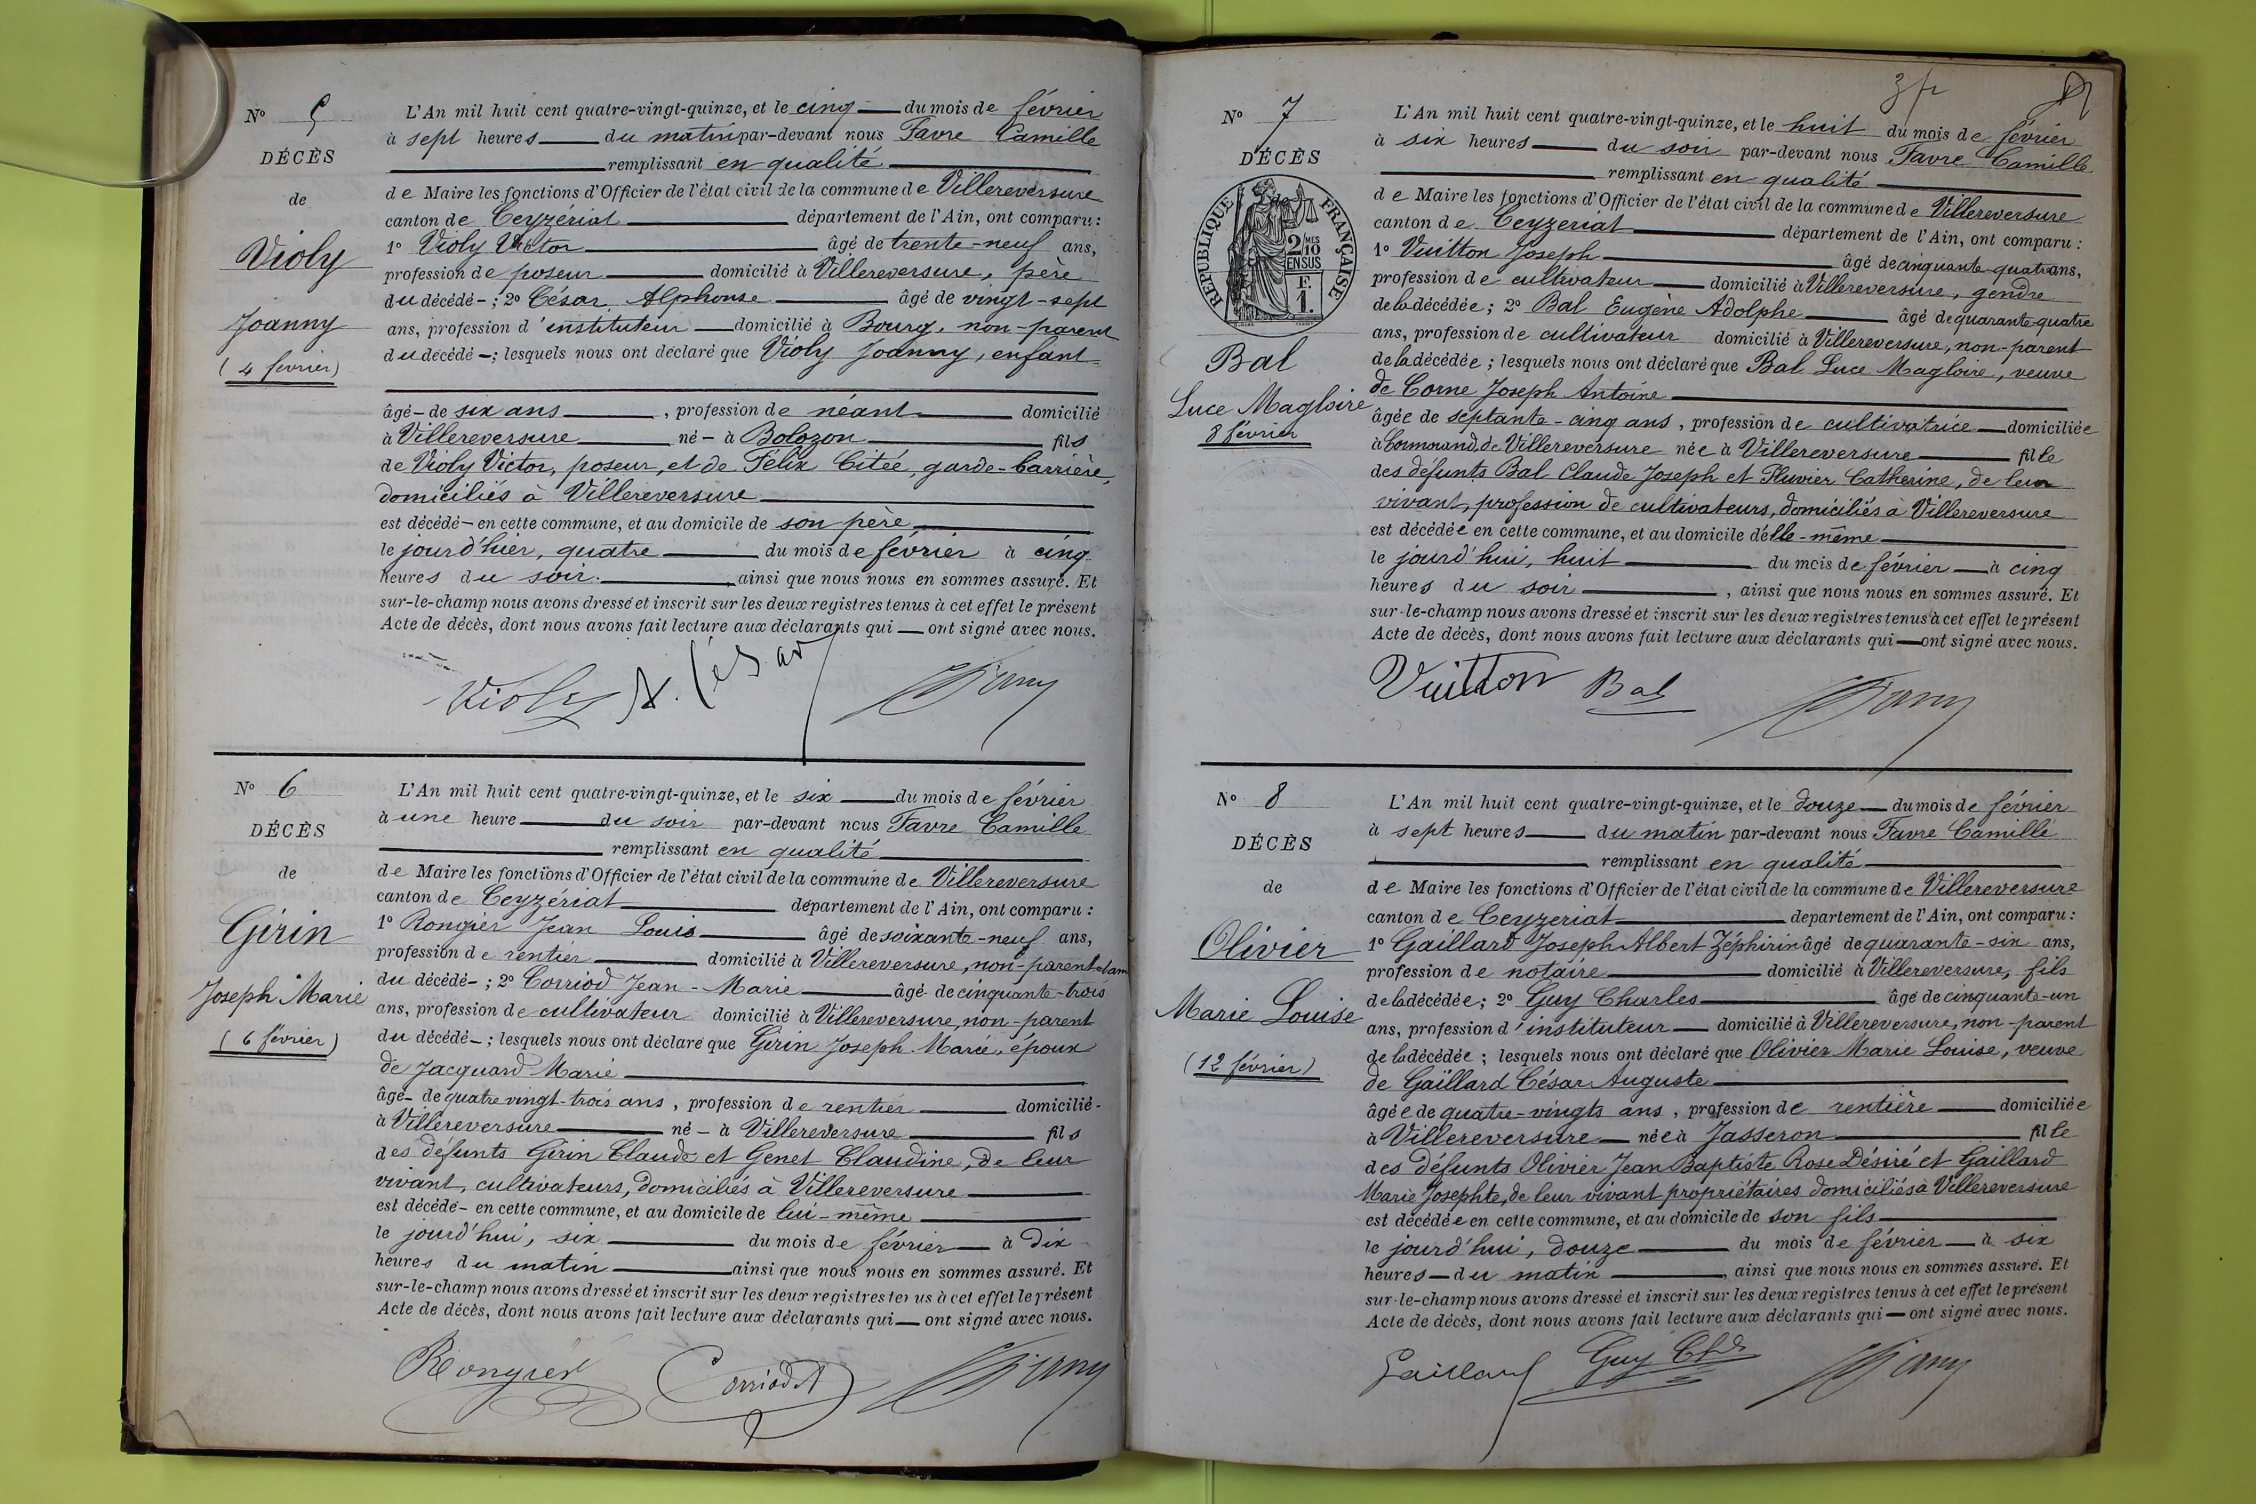 Nº 5
DÉCÈS
de
Violy
Joanny
(4 février)
L'An mil huit cent quatre-vingt-quinze, et le cinq du mois de février
à sept heures du matin par-devant nous Favre Camille
remplissant en qualité
de Maire les fonctions d'Officier de l'état civil de la commune de Villereversure
canton de Ceyzériat département de l'Ain, ont comparu :
1º Violy Victor âgé de trente-neuf ans,
profession de poseur domicilié à Villereversure, père
du décédé ; 2º César Alphonse âgé de vingt-sept
ans, profession d'instituteur domicilié à Bourg, non-parent
du décédé ; lesquels nous ont déclaré que Violy Joanny, enfant
âgé de six ans, profession de néant domicilié
à Villereversure né à Bolozon fils
de Violy Victor, poseur, et de Félix Citée, garde-barrière,
domiciliés à Villereversure
est décédé en cette commune, et au domicile de son père
le jourd'hier, quatre du mois de février à cinq
heures du soir. ainsi que nous nous en sommes assuré. Et
sur-le-champ nous avons dressé et inscrit sur les deux registres tenus à cet effet le présent
Acte de décès, dont nous avons fait lecture aux déclarants qui ont signé avec nous.
Violy A. César
Nº 6
DÉCÈS
de
Girin
Joseph Marie
(6 février)
L'An mil huit cent quatre-vingt-quinze, et le six du mois de février
à une heure du soir par-devant nous Favre Camille
remplissant en qualité
de Maire les fonctions d'Officier de l'état civil de la commune de Villereversure
canton de Ceyzériat département de l'Ain, ont comparu :
1º Rongier Jean Louis âgé de soixante-neuf ans,
profession de rentier domicilié à Villereversure, non-parent
du décédé ; 2º Corriod Jean-Marie âgé de cinquante-trois
ans, profession de cultivateur domicilié à Villereversure, non-parent
du décédé ; lesquels nous ont déclaré que Girin Joseph Marie, époux
de Jacquard Marie
âgé de quatre vingt-trois ans, profession de rentier domicilié
à Villereversure né à Villereversure fils
des défunts Girin Claude et Genet Claudine, de leur
vivant, cultivateurs, domiciliés à Villereversure
est décédé en cette commune, et au domicile de lui-même
le jourd'hui, six du mois de février à dix
heures du matin ainsi que nous nous en sommes assuré. Et
sur-le-champ nous avons dressé et inscrit sur les deux registres tenus à cet effet le présent
Acte de décès, dont nous avons fait lecture aux déclarants qui ont signé avec nous.
Rongier Corriod
3 fr
Nº 7
DÉCÈS
RÉPUBLIQUE FRANÇAISE
2/10 MES
EN SUS
F.
1.
Bal
Luce Magloire
8 février
L'An mil huit cent quatre-vingt-quinze, et le huit du mois de février
à six heures du soir par-devant nous Favre Camille
remplissant en qualité
de Maire les fonctions d'Officier de l'état civil de la commune de Villereversure
canton de Ceyzeriat département de l'Ain, ont comparu :
1º Vuitton Joseph âgé de cinquante-quatre ans,
profession de cultivateur domicilié à Villereversure, gendre
de la décédée ; 2º Bal Eugène Adolphe âgé de quarante-quatre
ans, profession de cultivateur domicilié à Villereversure, non-parent
de la décédée ; lesquels nous ont déclaré que Bal Luce Magloire, veuve
de Corne Joseph Antoine
âgée de septante-cinq ans, profession de cultivatrice domiciliée
à de Villereversure née à Villereversure fille
des defunts Bal Claude Joseph et Pluvier Catherine, de leur
vivant, profession de cultivateurs, domiciliés à Villereversure
est décédée en cette commune, et au domicile d'elle-même
le jourd'hui, huit du mois de février à cinq
heures du soir, ainsi que nous nous en sommes assuré. Et
sur-le-champ nous avons dressé et inscrit sur les deux registres tenus à cet effet le présent
Acte de décès, dont nous avons fait lecture aux déclarants qui ont signé avec nous.
Vuitton Bal
Nº 8
DÉCÈS
de
Olivier
Marie Louise
(12 février)
L'An mil huit cent quatre-vingt-quinze, et le douze du mois de février
à sept heures du matin par-devant nous Favre Camille
remplissant en qualité
de Maire les fonctions d'Officier de l'état civil de la commune de Villereversure
canton de Ceyzeriat departement de l'Ain, ont comparu :
1º Gaillard Joseph Albert Zéphirin âgé de quarante-six ans,
profession de notaire domicilié à Villereversure, fils
de la décédée ; 2º Guy Charles âgé de cinquante-un
ans, profession d'instituteur domicilié à Villereversure, non-parent
de la décédée ; lesquels nous ont déclaré que Olivier Marie Louise, veuve
de Gaillard César Auguste
âgée de quatre-vingts ans, profession de rentière domiciliée
à Villereversure née à Jasseron fille
des défunts Olivier Jean Baptiste Rose Désiré et Gaillard
Marie Josephte, de leur vivant propriétaires domiciliés à Villereversure
est décédée en cette commune, et au domicile de son fils
le jourd'hui, douze du mois de février à six
heures du matin, ainsi que nous nous en sommes assuré. Et
sur-le-champ nous avons dressé et inscrit sur les deux registres tenus à cet effet le présent
Acte de décès, dont nous avons fait lecture aux déclarants qui ont signé avec nous.
Gaillard Guy Ch